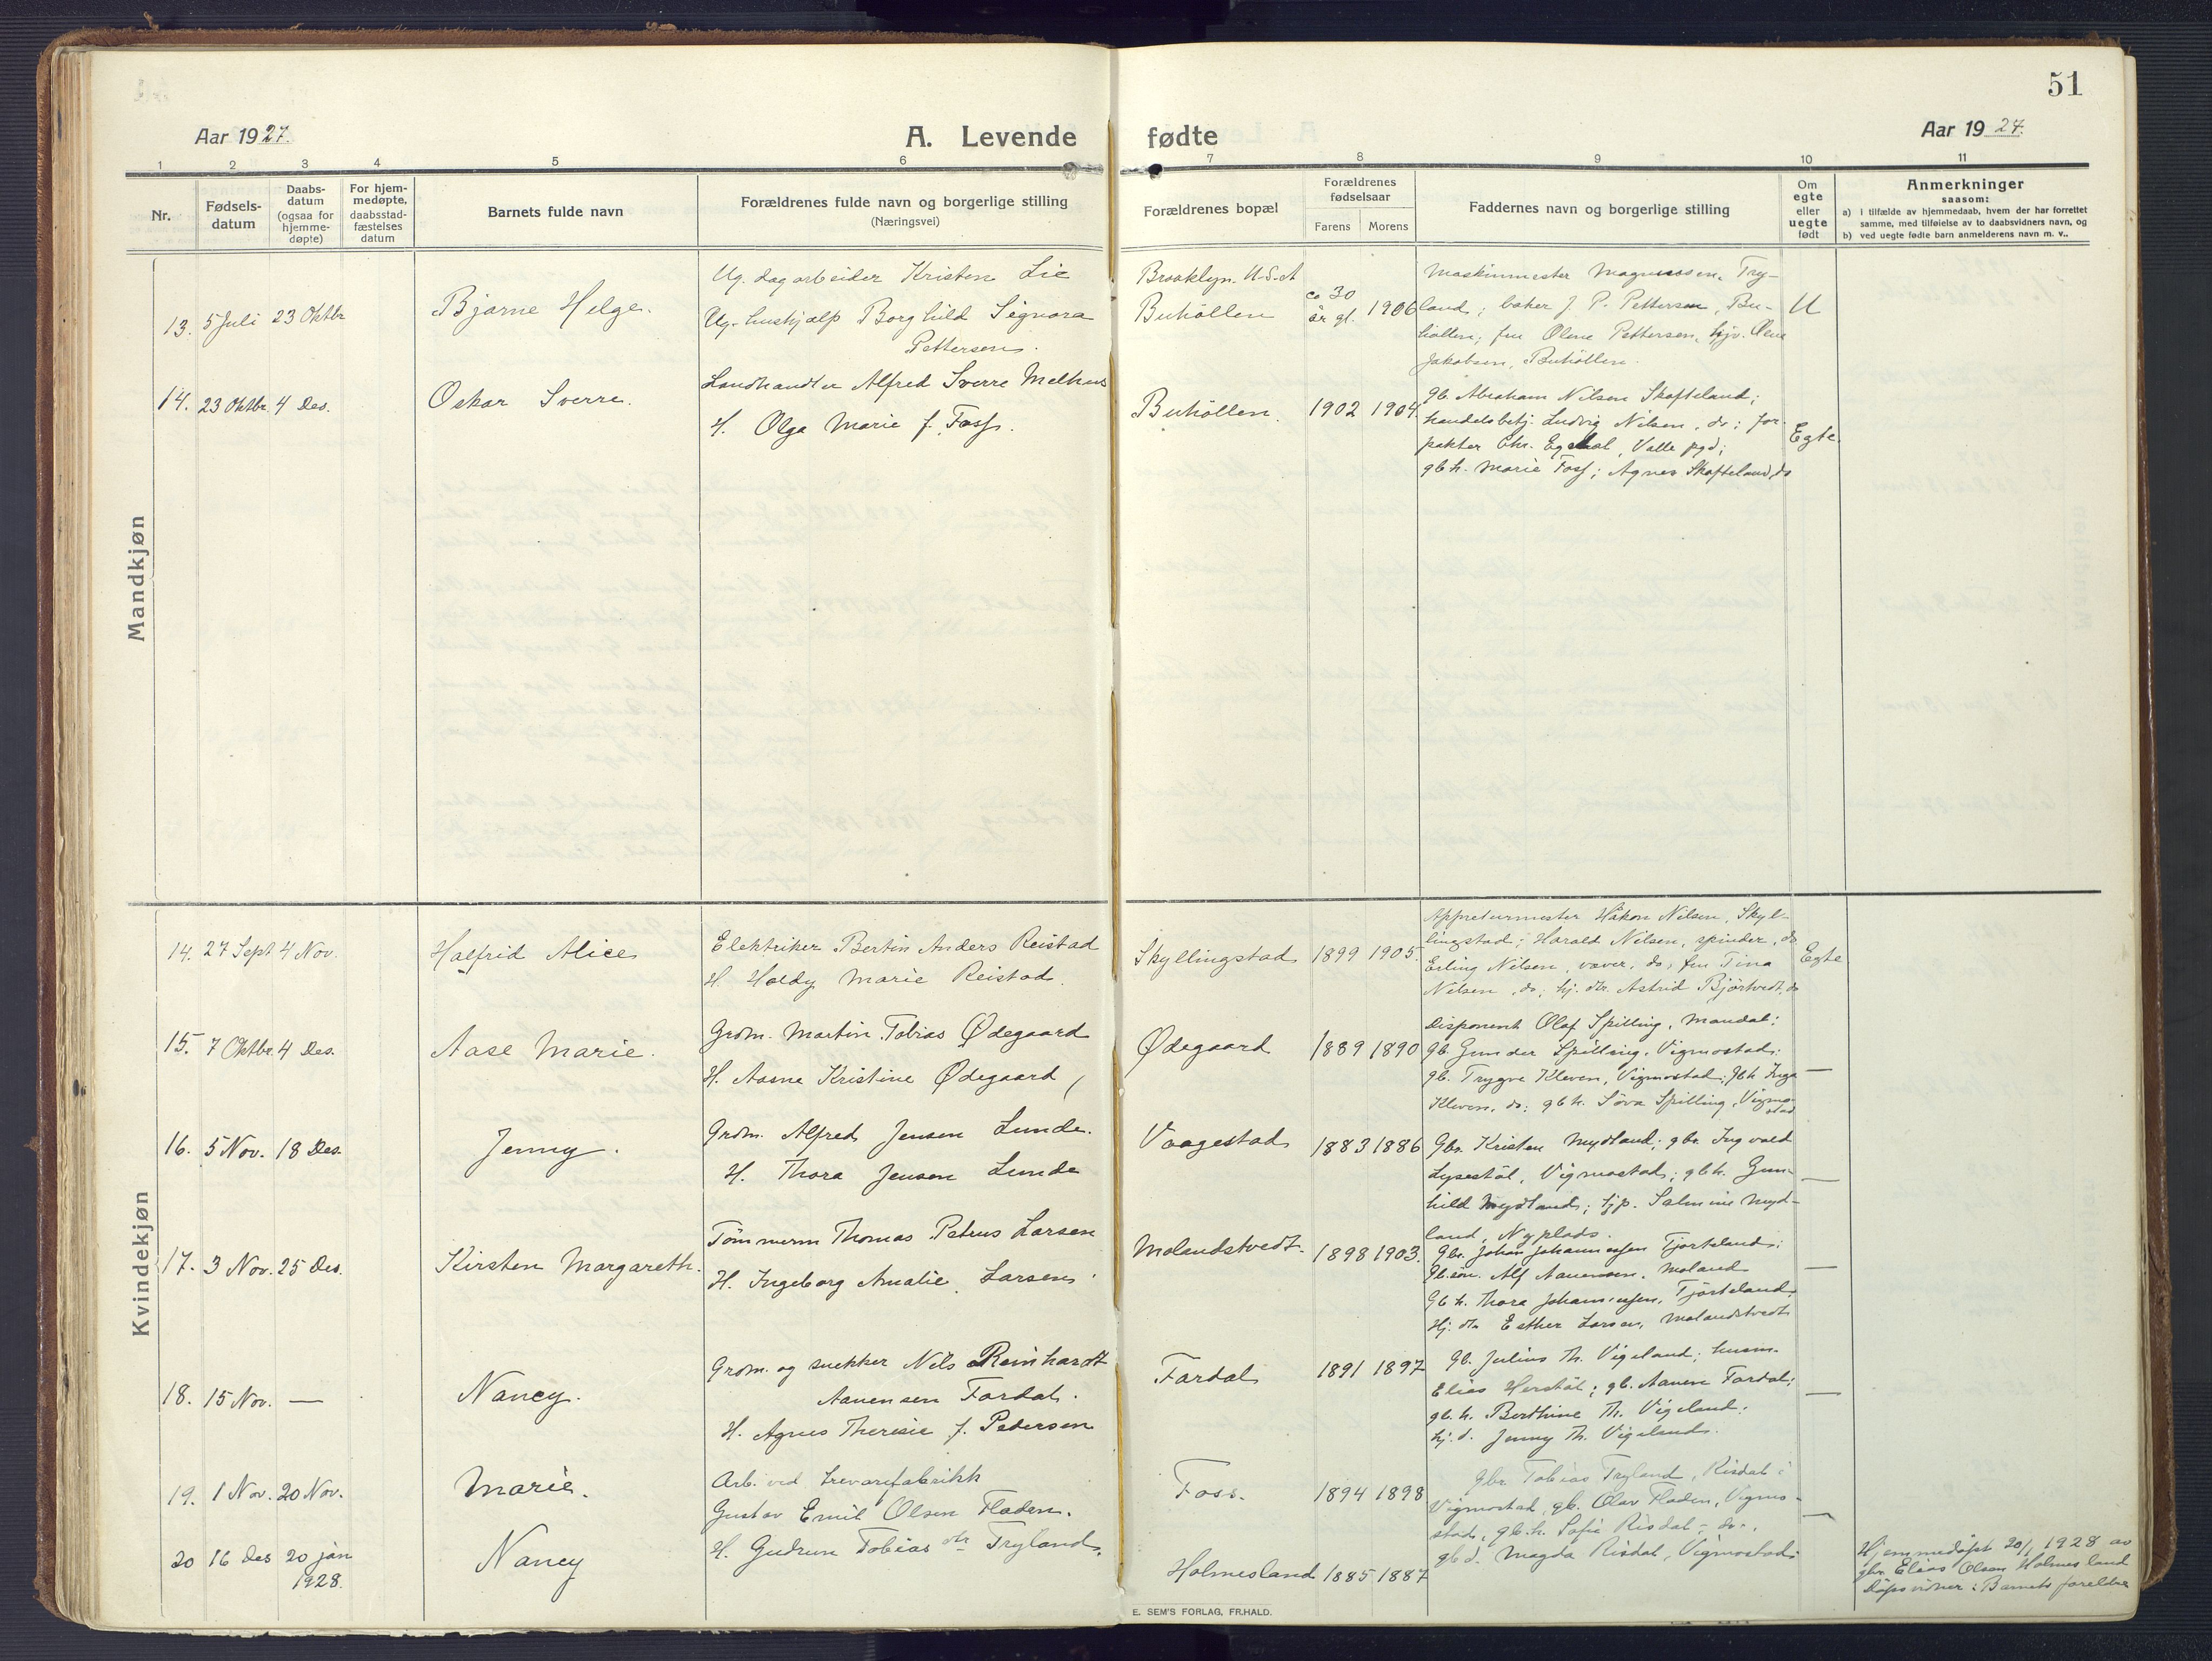 51
Aar 1927.
A. Levende fødte
Aar 1927.
1 2 3 4 5 6 7 8 9 10 11
Nr.
Fødsels-
datum
Daabs-
datum
(ogsaa for
hjemme-
døpte)
For hjem-
medøpte,
daabsstad-
fæstelses
datum
Barnets fulde navn
Forældrenes fulde navn og borgerlige stilling
(Næringsvei)
Forældrenes bopæl
Forældrenes
fødselsaar
Farens Morens
Faddernes navn og borgerlige stilling
Om
egte
eller
uegte
født
Anmerkninger
saasom:
a) i tilfælde av hjemmedaab, hvem der har forrettet
samme, med tilføielse av to daabsvidners navn, og
b) ved uegte fødte barn anmelderens navn m. v..
Mandkjøn
13. 5 Juli 23 Oktbr
Bjarne Helge.
Ug. dagarbeider Kristen Lie
Ug. hushjælp Borghild Signora
Pettersen.
Brooklyn. U.S.A
Buhöllen
ca 30
år gl. 1906
Maskinmester Magnussen, Try-
land; baker J. P. Pettersen, Bu-
höllen; fru Olene Pettersen, Olene
Jakobsen, Buhöllen.
U
14. 23 Oktbr. 4 Des.
Oskar Sverre.
Landhandler Alfred Sverre Melhus
H. Olga Marie f. Foss.
Buhöllen. 1902 1904.
gb. Abraham Nilsen Skofteland;
handelsbetj. Ludvig Nilsen, do; for-
pakter Chr. Egeland, Valle pgd;
gbh. Marie Foss; Agnes Skofteland, do
Egte
Kvindekjøn
14. 27 Sept 4 Nov.
Halfrid Alice
Elektriker Bertin Anders Reistad
H. Holdy Marie Reistad.
Skyllingstad 1899 1905.
Appreturmester Håkon Nilsen, Skyl-
lingstad; Harald Nilsen, spinder, do
Erling Nilsen, væver, do; fru Tina
Nilsen, do; hj. dtr. Astrid Bjørtvedt, do
Egte
15. 7 Oktbr. 4 Des.
Aase Marie.
Grdm. Martin Tobias Ødegaard
H. Aasne Kristine Ødegaard
Ødegaard 1889 1890
Disponent Olaf Spilling, Mandal;
gb. Gunder Spilling, Vigmostad;
gb. Trygve Kleven, Vigmostad; gbh Inga
Kleven, do; gbh. Söva Spilling, Vigmo-
stad
—
16. 5 Nov. 18 Des.
Jenny.
Grdm. Alfred Jensen Lunde.
H. Thora Jensen Lunde
Vaagestad 1883 1886
Gbr. Kristen Mydland; gbr. Ingvald
Lysestöl, Vigmostad; gbh. Gun-
hild Mydland; tjp. Salmine Myd-
land, Nyplads.
—
17. 3 Nov. 25 Des.
Kirsten Margareth.
Tömmerm Thomas Petrus Larsen
H. Ingeborg Amalie Larsen
Molandstvedt. 1898 1903.
Gbr. Johan Johannessen Tjorteland;
Gb.sön. Alf Aanensen, Moland
Gbh. Thora Johannessen, Tjorteland,
Hj. dtr Esther Larsen, Molandstvedt
—
18. 15 Nov. —
Nancy.
Grdm. og snekker Nils Reinhardt
Aanensen Fardal.
H. Agnes Theresie f. Pedersen
Fardal 1891 1897
Gb. Julius Th. Vigeland; husm.
Elias Herstöl; gb. Aanen Fardal;
gb.h. Berthine Th. Vigeland;
hj. d. Jenny Th. Vigeland.
—
19. 1 Nov. 20 Nov.
Marie.
Arb. ved trevarefabrikk
Gustav Emil Olsen Fladen.
H. Gudrun Tobiasdtr Tryland.
Foss. 1894 1898
Gbr Tobias Tryland, Risdal i
Vigmostad, gb. Olav Fladen, Vigmo-
stad, gb.h. Sofie Risdal - do -,
gb d. Magda Risdal, Vigmostad
—
20 16 des 20 jan
1928.
Nancy
Holmesland 1885 1887
Hjemmedöpt 20/1 1928 av
gbr. Elias Olsen Holmesland
Döpsvidner: Barnets foreldre
E. SEM'S FORLAG, FR.HALD.